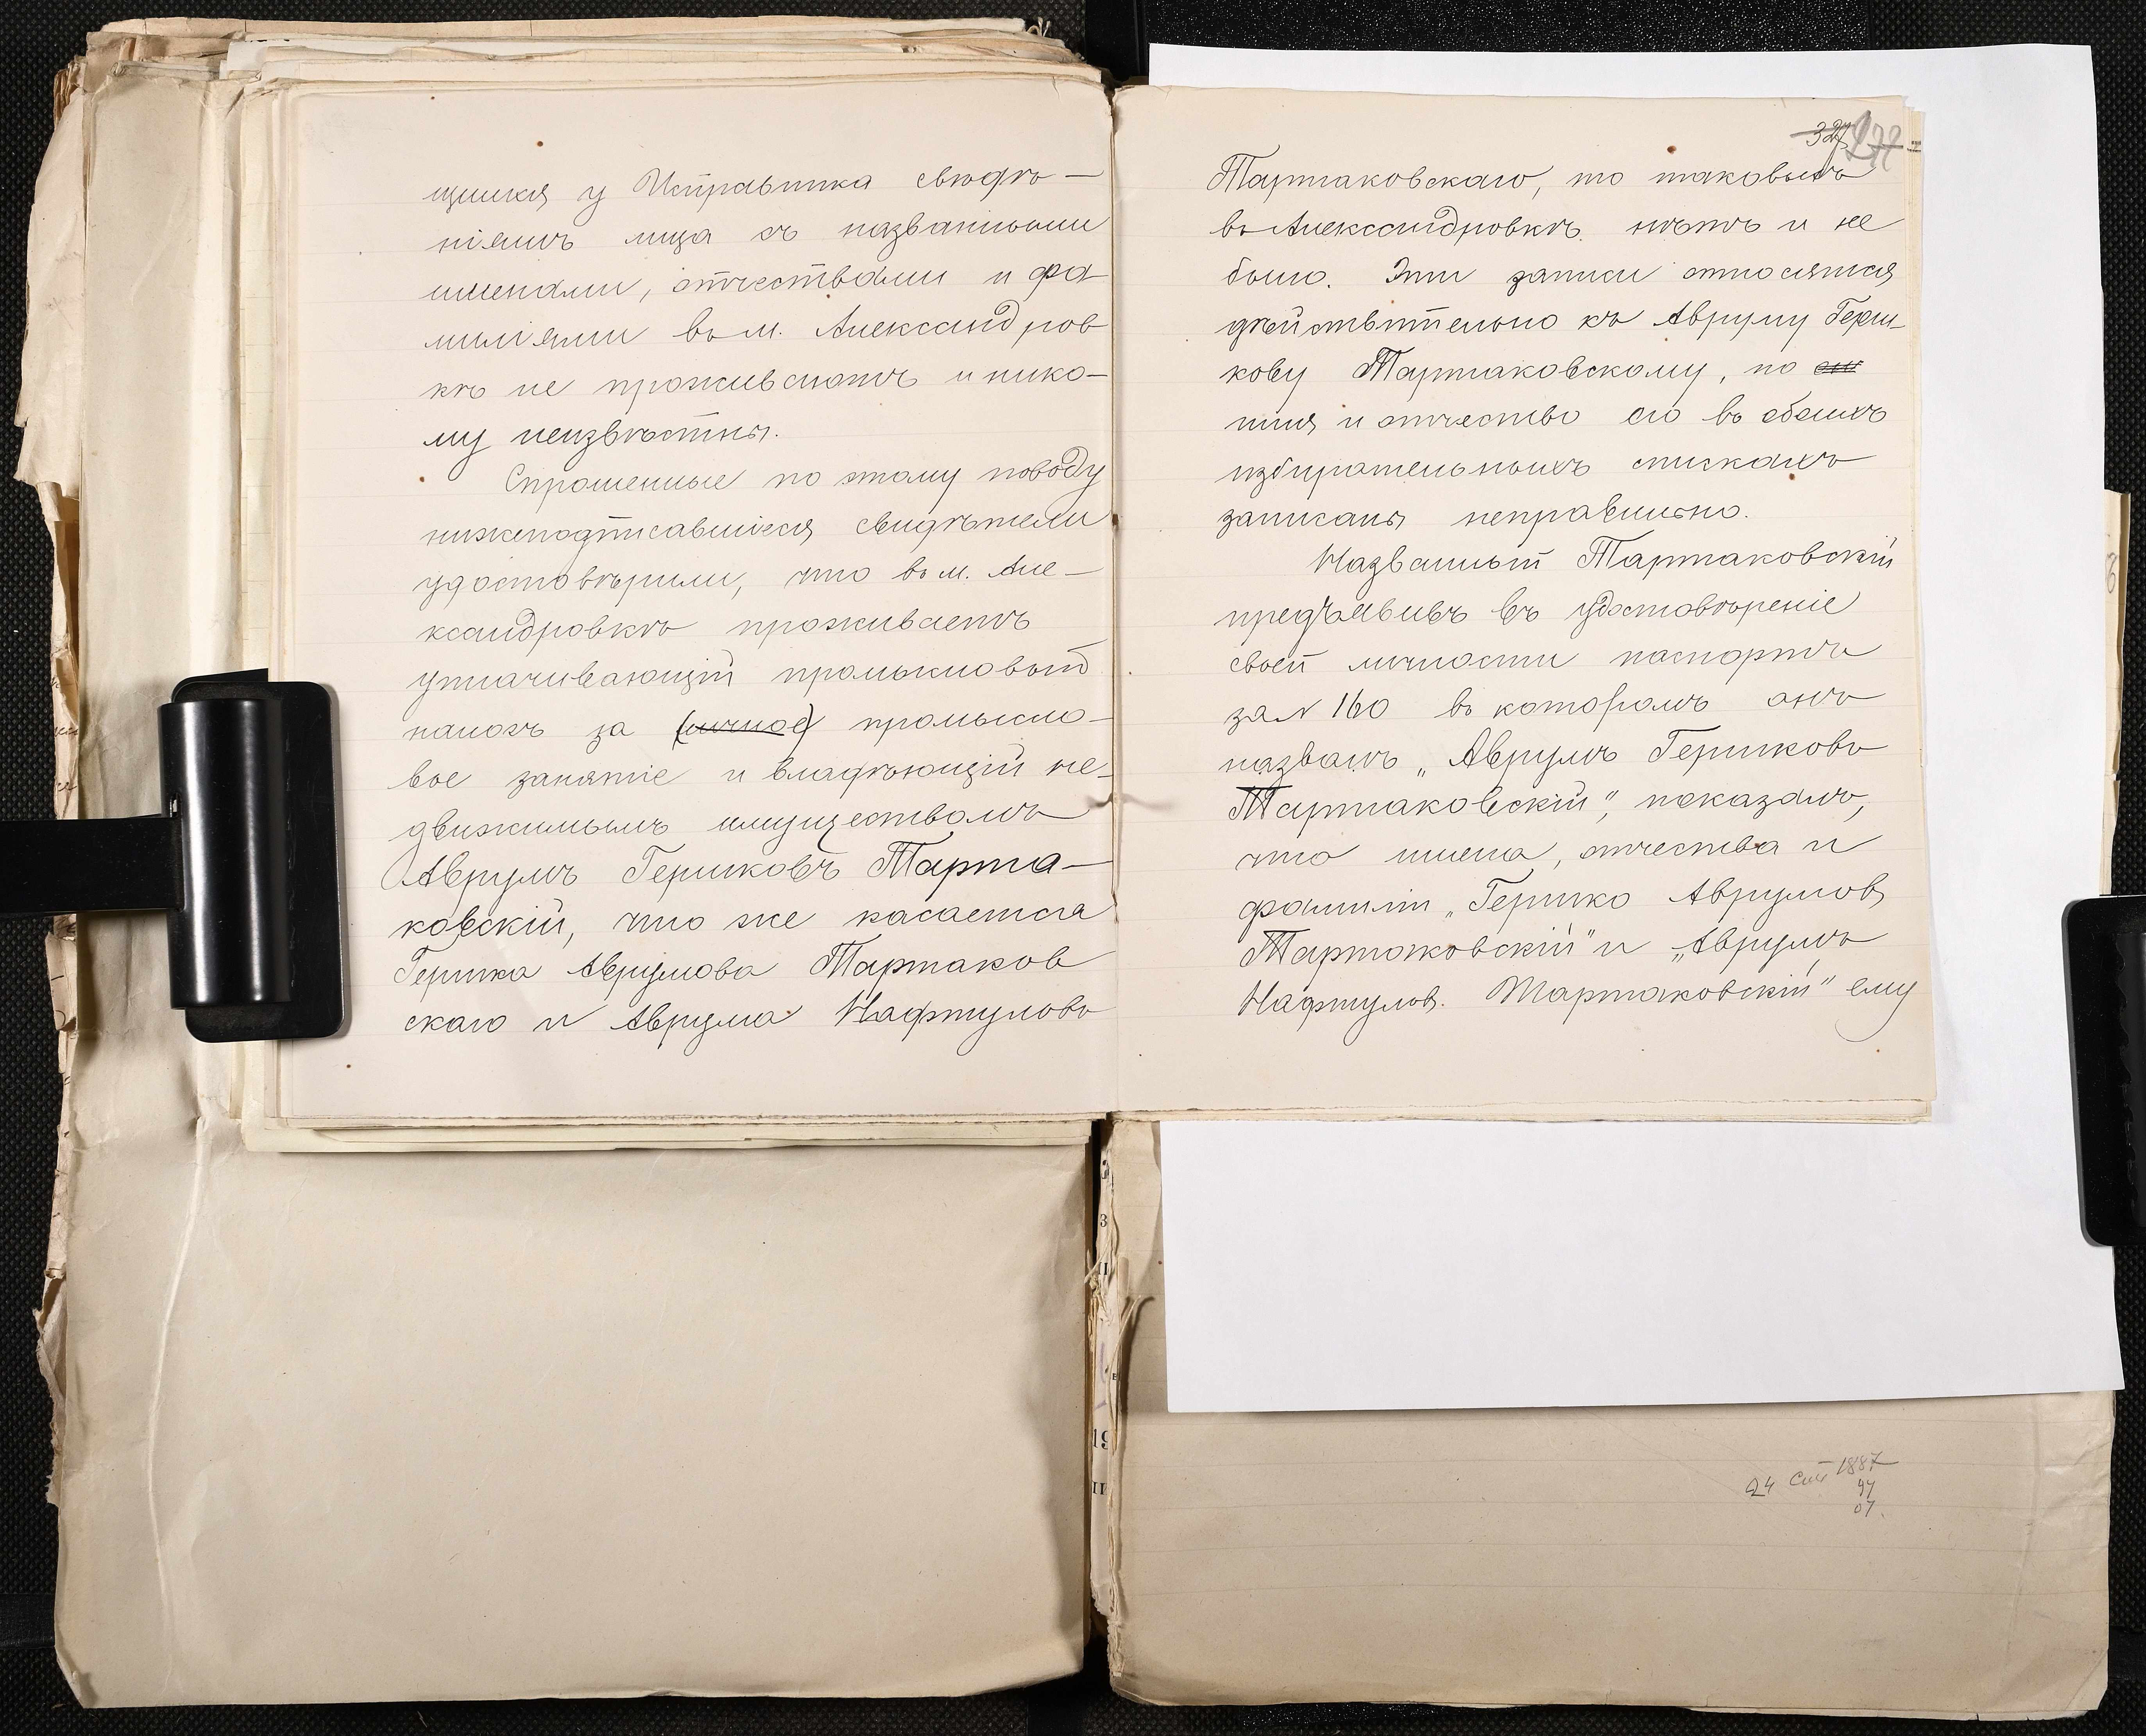 щимся у Исправника свѣдѣ-
ніямъ лица съ названными
именами, отчествами и фа
миліями въ м. Александров
кѣ не проживаютъ и нико-
му неизвѣстны.
Спрошенные по этому поводу
нижеподписавшіеся свидѣтели
удостовѣрили, что въ м. Але-
ксандровкѣ проживаетъ
уплачивающій промысловый
налогъ за (личное) промысло-
вое занятіе и владѣющій не-
движимымъ имуществомъ
Аврумъ Гершковъ Тарта-
ковскій, что же касается
Гершка Аврумова Тартаков
скаго и Аврума Нафтулова
327
Тартаковскаго, то таковыхъ
въ Александровкѣ нѣтъ и не
было. Эти записи относятся
дѣйствительно къ Авруму Герш-
кову Тартаковскому, но
имя и отчество его въ обоихъ
избирательныхъ спискахъ
записаны неправильно.
Названный Тартаковскій
предъявивъ въ удостовѣреніе
своей личности паспортъ
за № 160 въ которомъ онъ
названъ „Аврумъ Гершковъ
Тартаковскій", показалъ,
что имена, отчества и
фамиліи „Гершко Аврумов.
Тартаковскій" и „Аврумъ
Нафтулов. Тартаковскій" ему
24 1887
97
07.